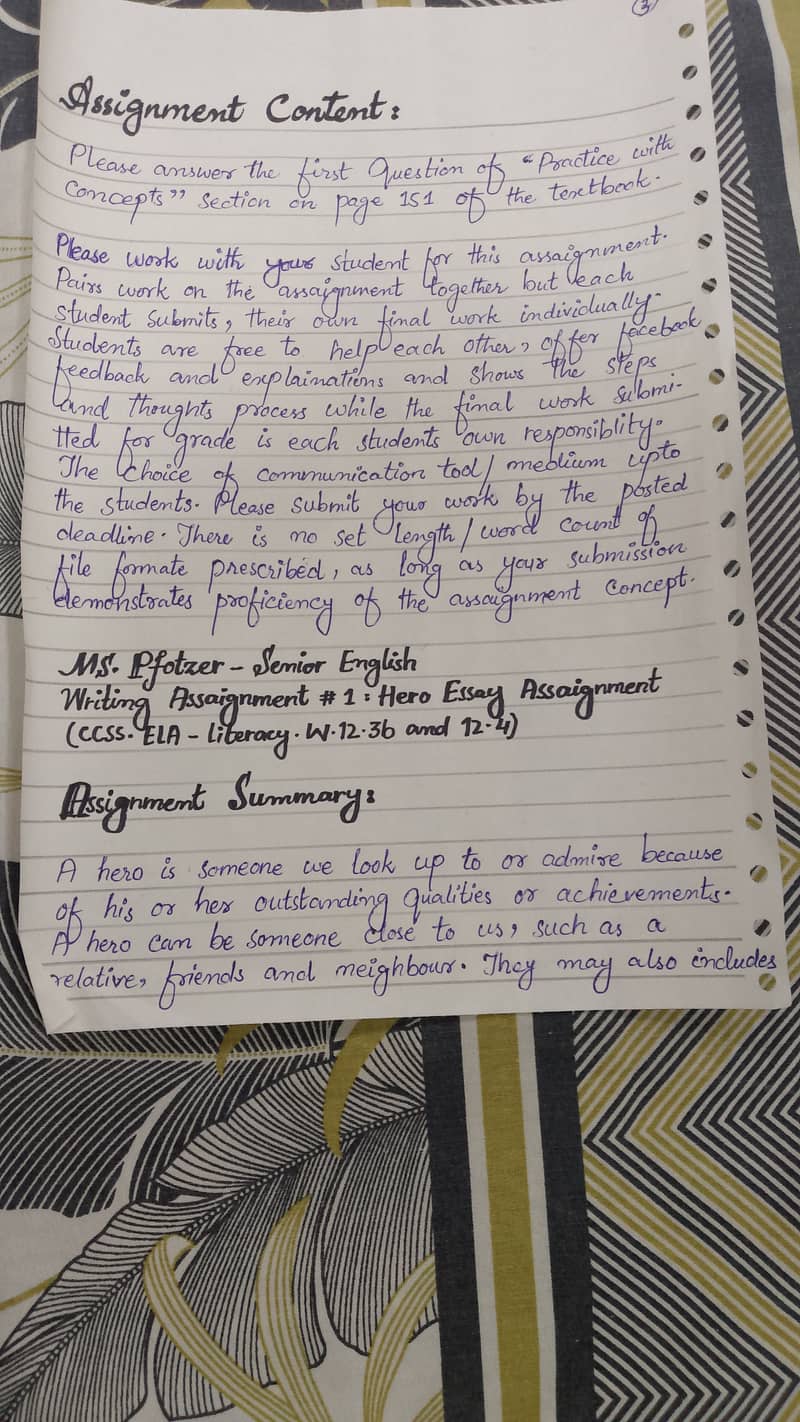 3
Assignment Content:
Please answer the first Question of "Practice with
Concepts" section on page 151 of the textbook.
Please work with your student for this assaignment.
Pairs work on the assaignment together but each
student submits, their own final work individually.
Students are free to help each other, offer facebook
feedback and explainations and shows the steps
and thoughts process while the final work submi-
tted for grade is each students own responsiblity.
The choice of communication tool/medium upto
the students. Please submit your work by the posted
deadline. There is no set length/word count of
file formate prescribed, as long as your submission
demonstrates proficiency of the assaignment concept.
MS. Pfotzer - Senior English
Writing Assaignment # 1: Hero Essay Assaignment
(CCSS. ELA - literacy. W.12.3b and 12.4)
Assignment Summary:
A hero is someone we look up to or admire because
of his or her outstanding qualities or achievements.
A hero can be someone close to us, such as a
relative, friends and neighbour. They may also includes